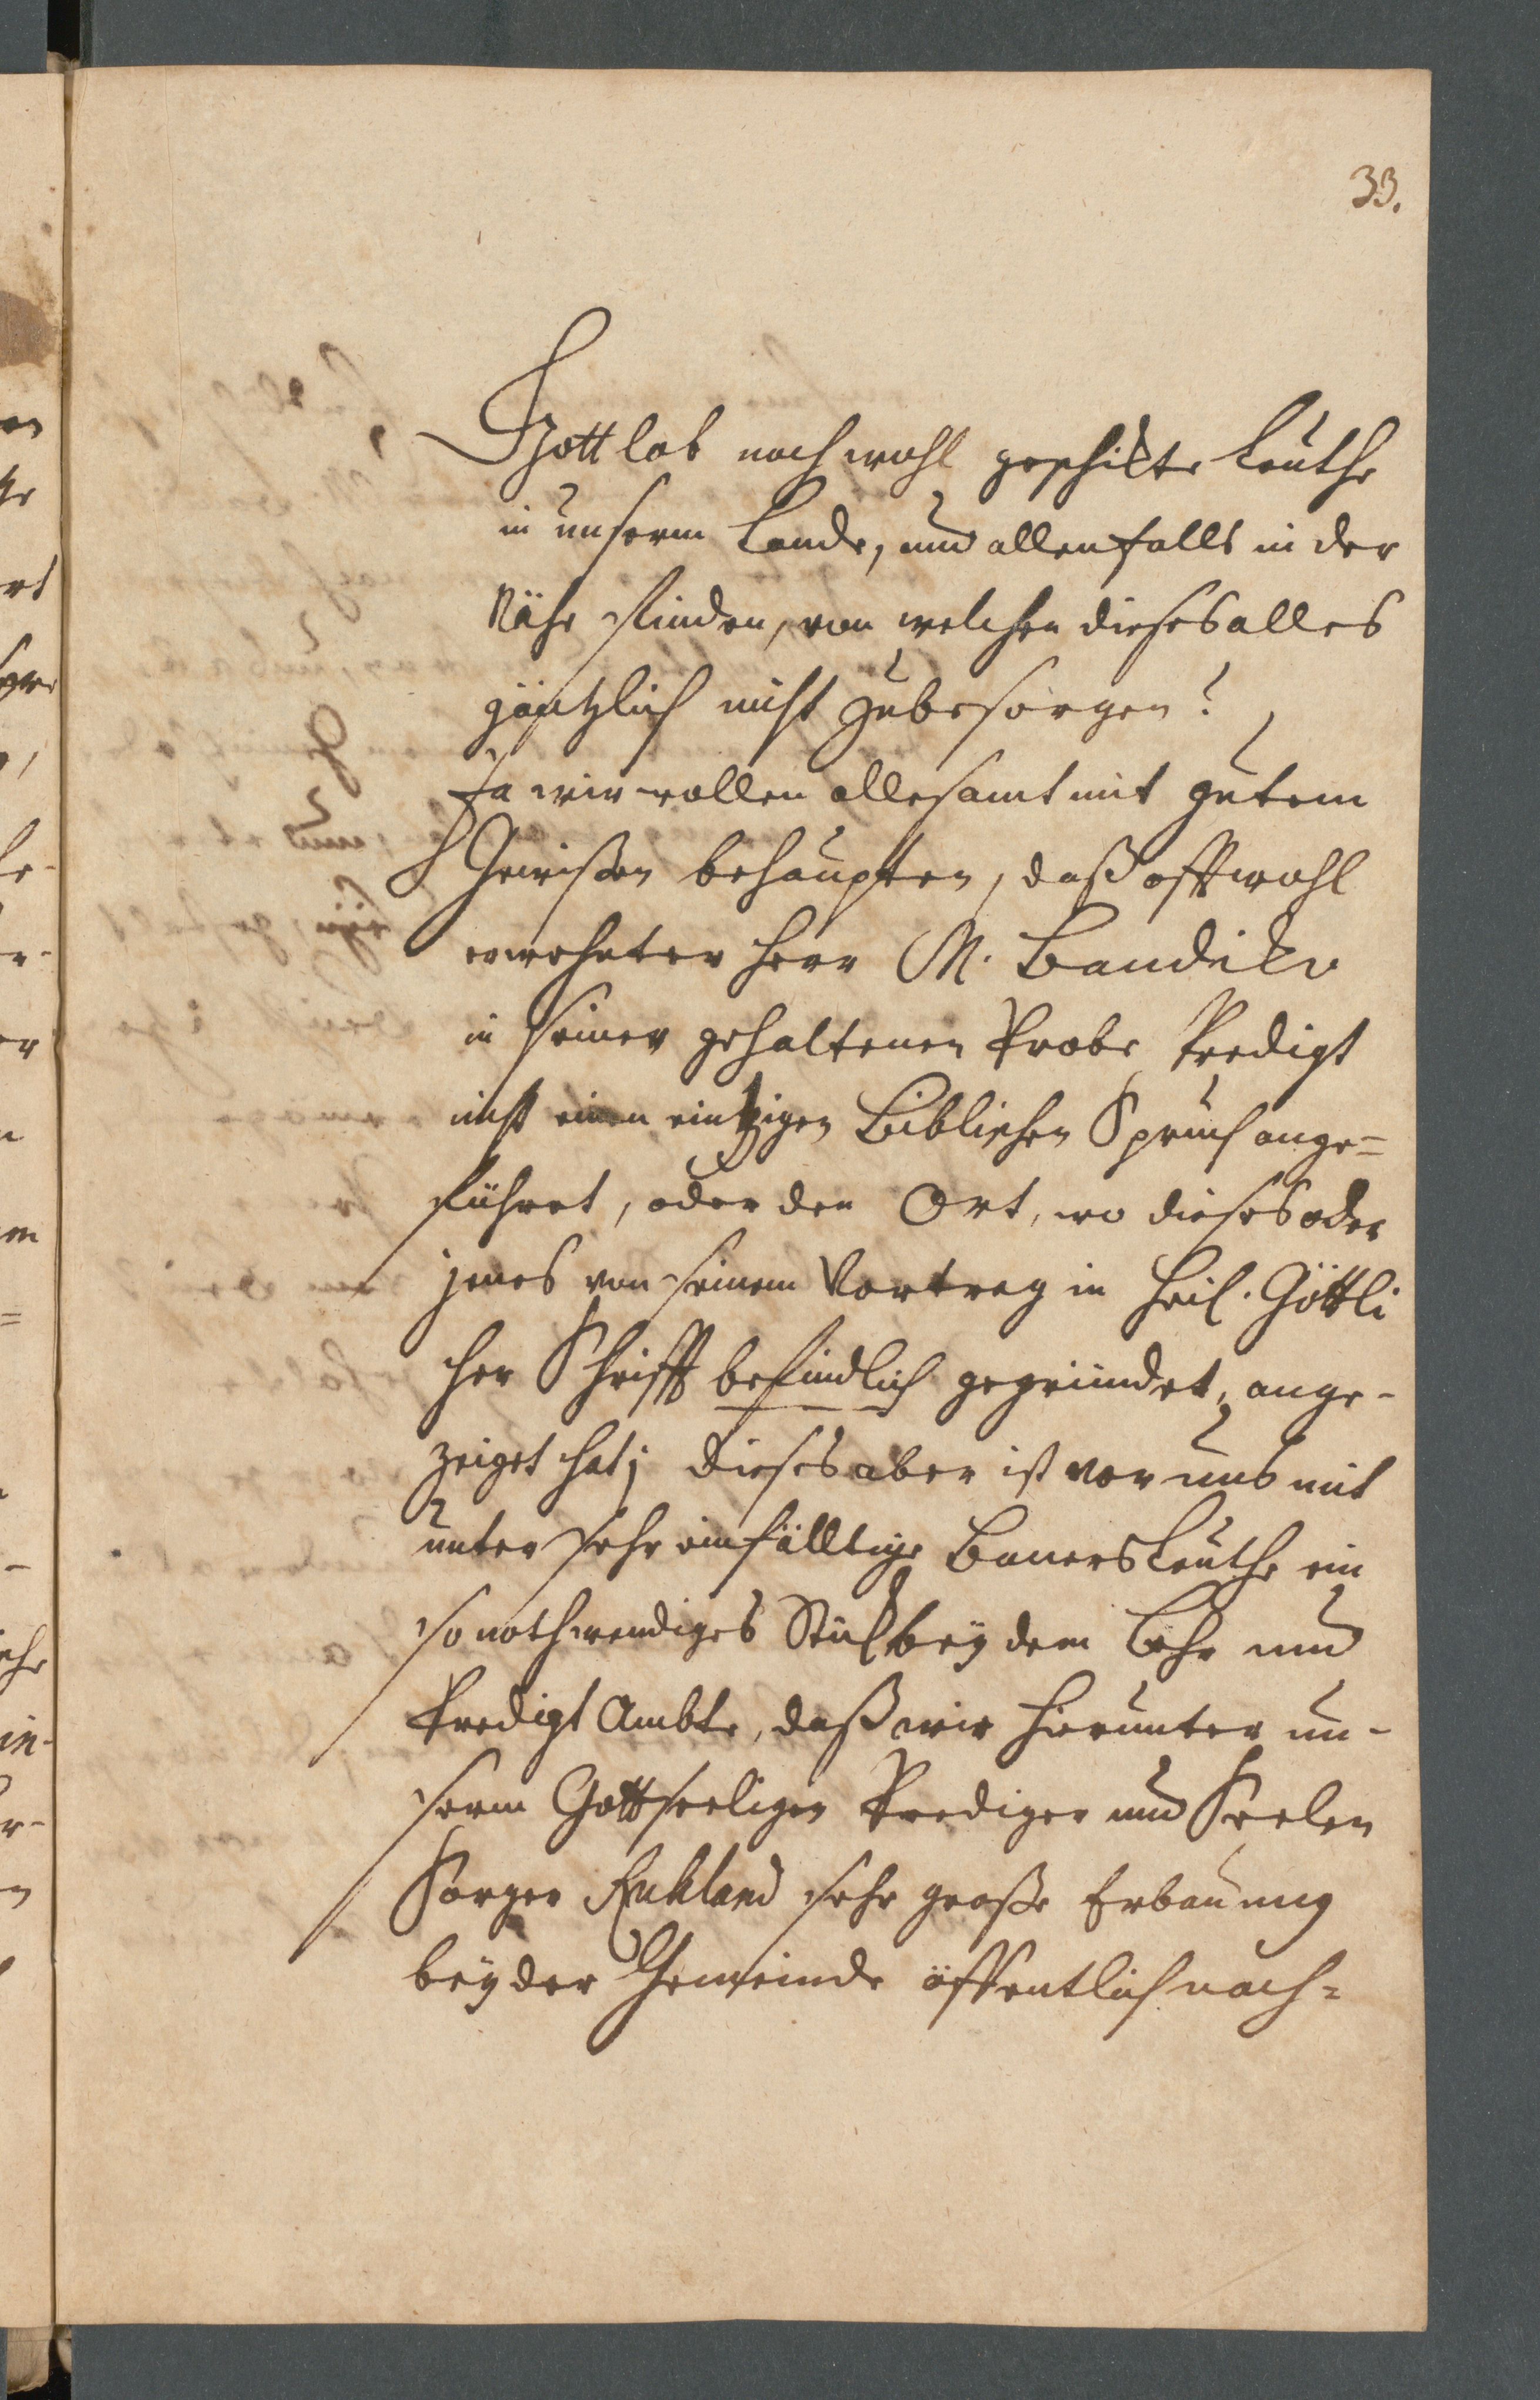 33.
Gott lob noch wohl geschikte Leuthe
in unserm Lande, und allenfalls in der
Nähe finden, von welchen dieses alles
gäntzlich nicht zubesorgen?
Ja wir wollen allesamt mit gutem
Gewißen behaupten, daß offtwohl
erwehnter Herr M. Bandiko
in seiner gehaltenen Probe Predigt
nicht einen eintzigen Biblischen Spruch ange=
führet, oder den Ort, wo dieses oder
jenes von seinem Vortrag in Heil. Göttli
cher Schrifft befindlich gegründet, ange-
zeiget hat; dieses aber ist vor uns mit
unter sehr einfälltige Bauersleuthe ein
so nothwendiges Stük bey dem Lehr und
Predigt Ambte, daß wir hierunter un-
serm Gottseeligen Prediger und Seelen
Sorger Ruhland sehr große Erbauung
bey der Gemeinde öffentlich nach=